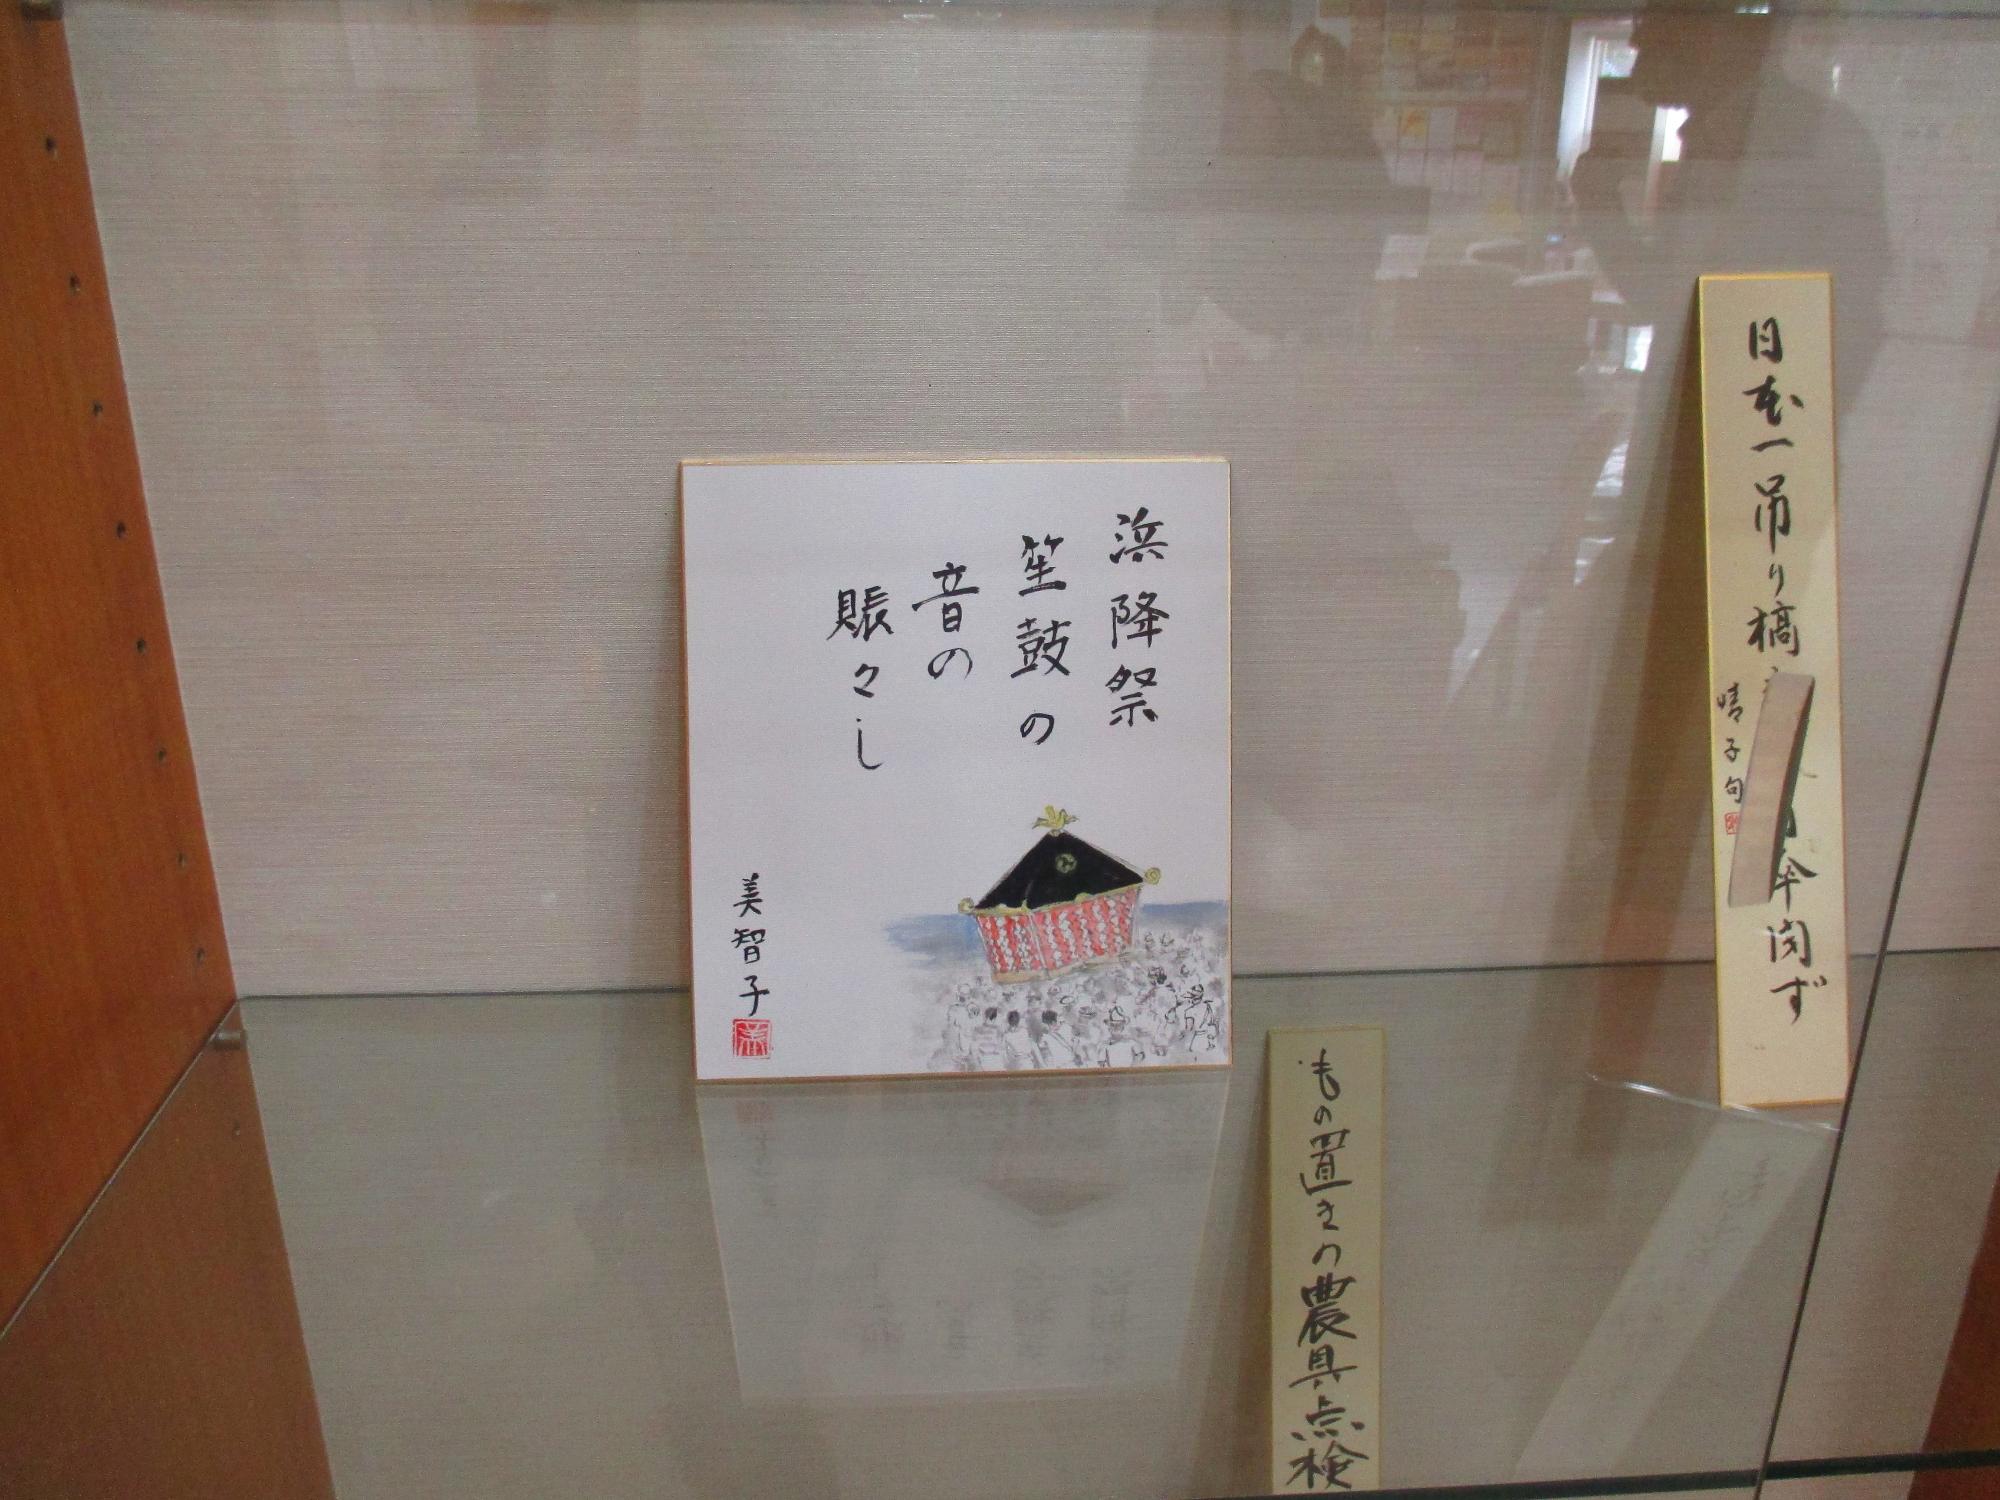 浜降祭
笙鼓の
音の
賑々し
美智子
日本一吊り橋
傘閉ず
晴子句
もの置きの農具点検